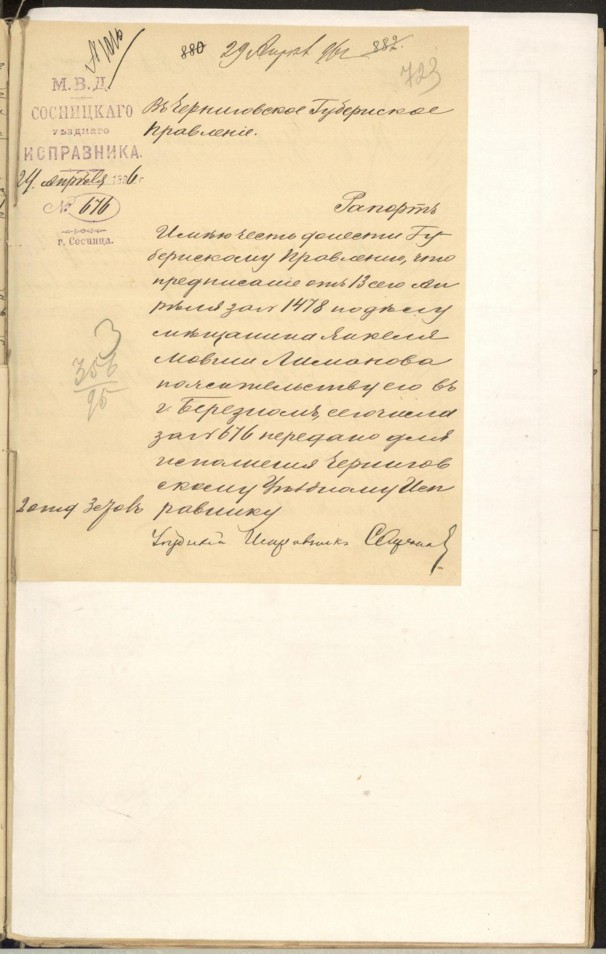 880 29 Апрѣля 96 г. 882.
723
М. В. Д.
СОСНИЦКАГО
УѢЗДНАГО
ИСПРАВНИКА.
24 Апрѣля 1896 г.
№ 676
г. Сосница.
Въ Черниговское Губернское
Правленіе.
Рапортъ
Имѣю честь донести Гу-
бернскому Правленію, что
предписаніе отъ 13 сего Ап
рѣля за № 1478 по дѣлу
мѣщанина Янкеля
Мовши Лиманова
по жительству его въ
г. Березномъ, сего числа
за № 676 передано для
исполненія Чернигов
скому Уѣздному Исп
равнику
356
95
2 отд
Уѣздный Исправникъ